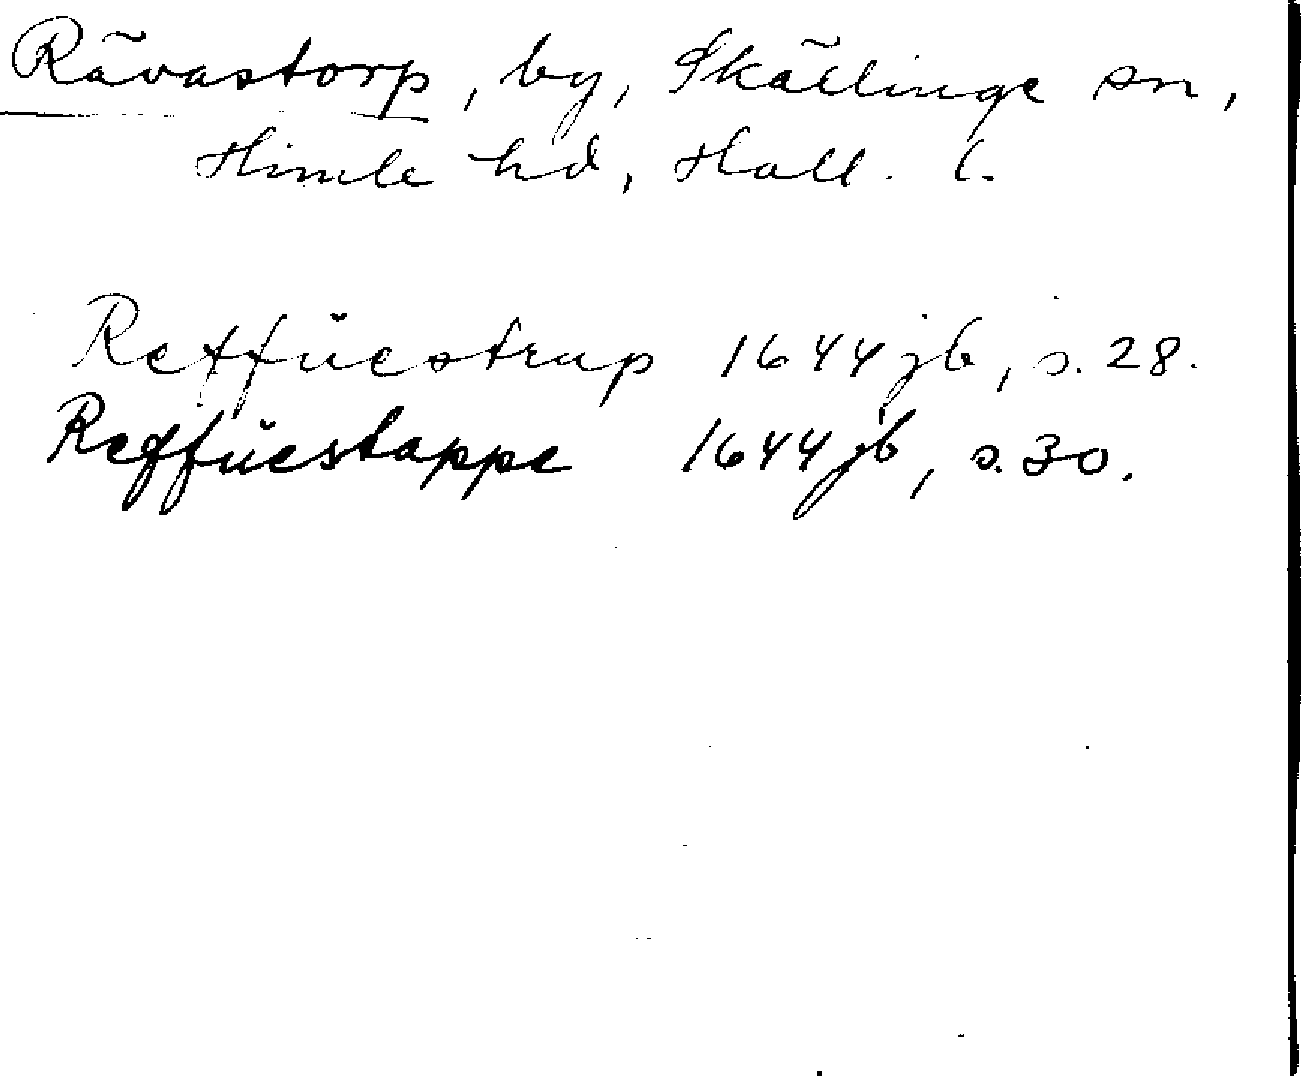 Rävastorp, by, Skällinge sn,
Himle hd, Hall. l.
Reffüestrup 1644 jb, s. 28.
Reffüestappe 1644 jb, s. 30.